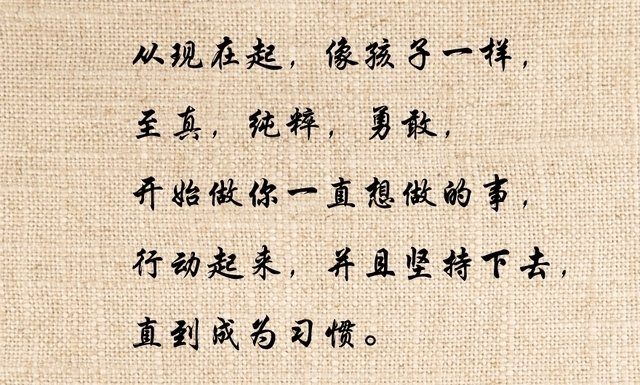 从现在起，像孩子一样，
至真，纯粹，勇敢，
开始做你一直想做的事，
行动起来，并且坚持下去，
直到成为习惯。